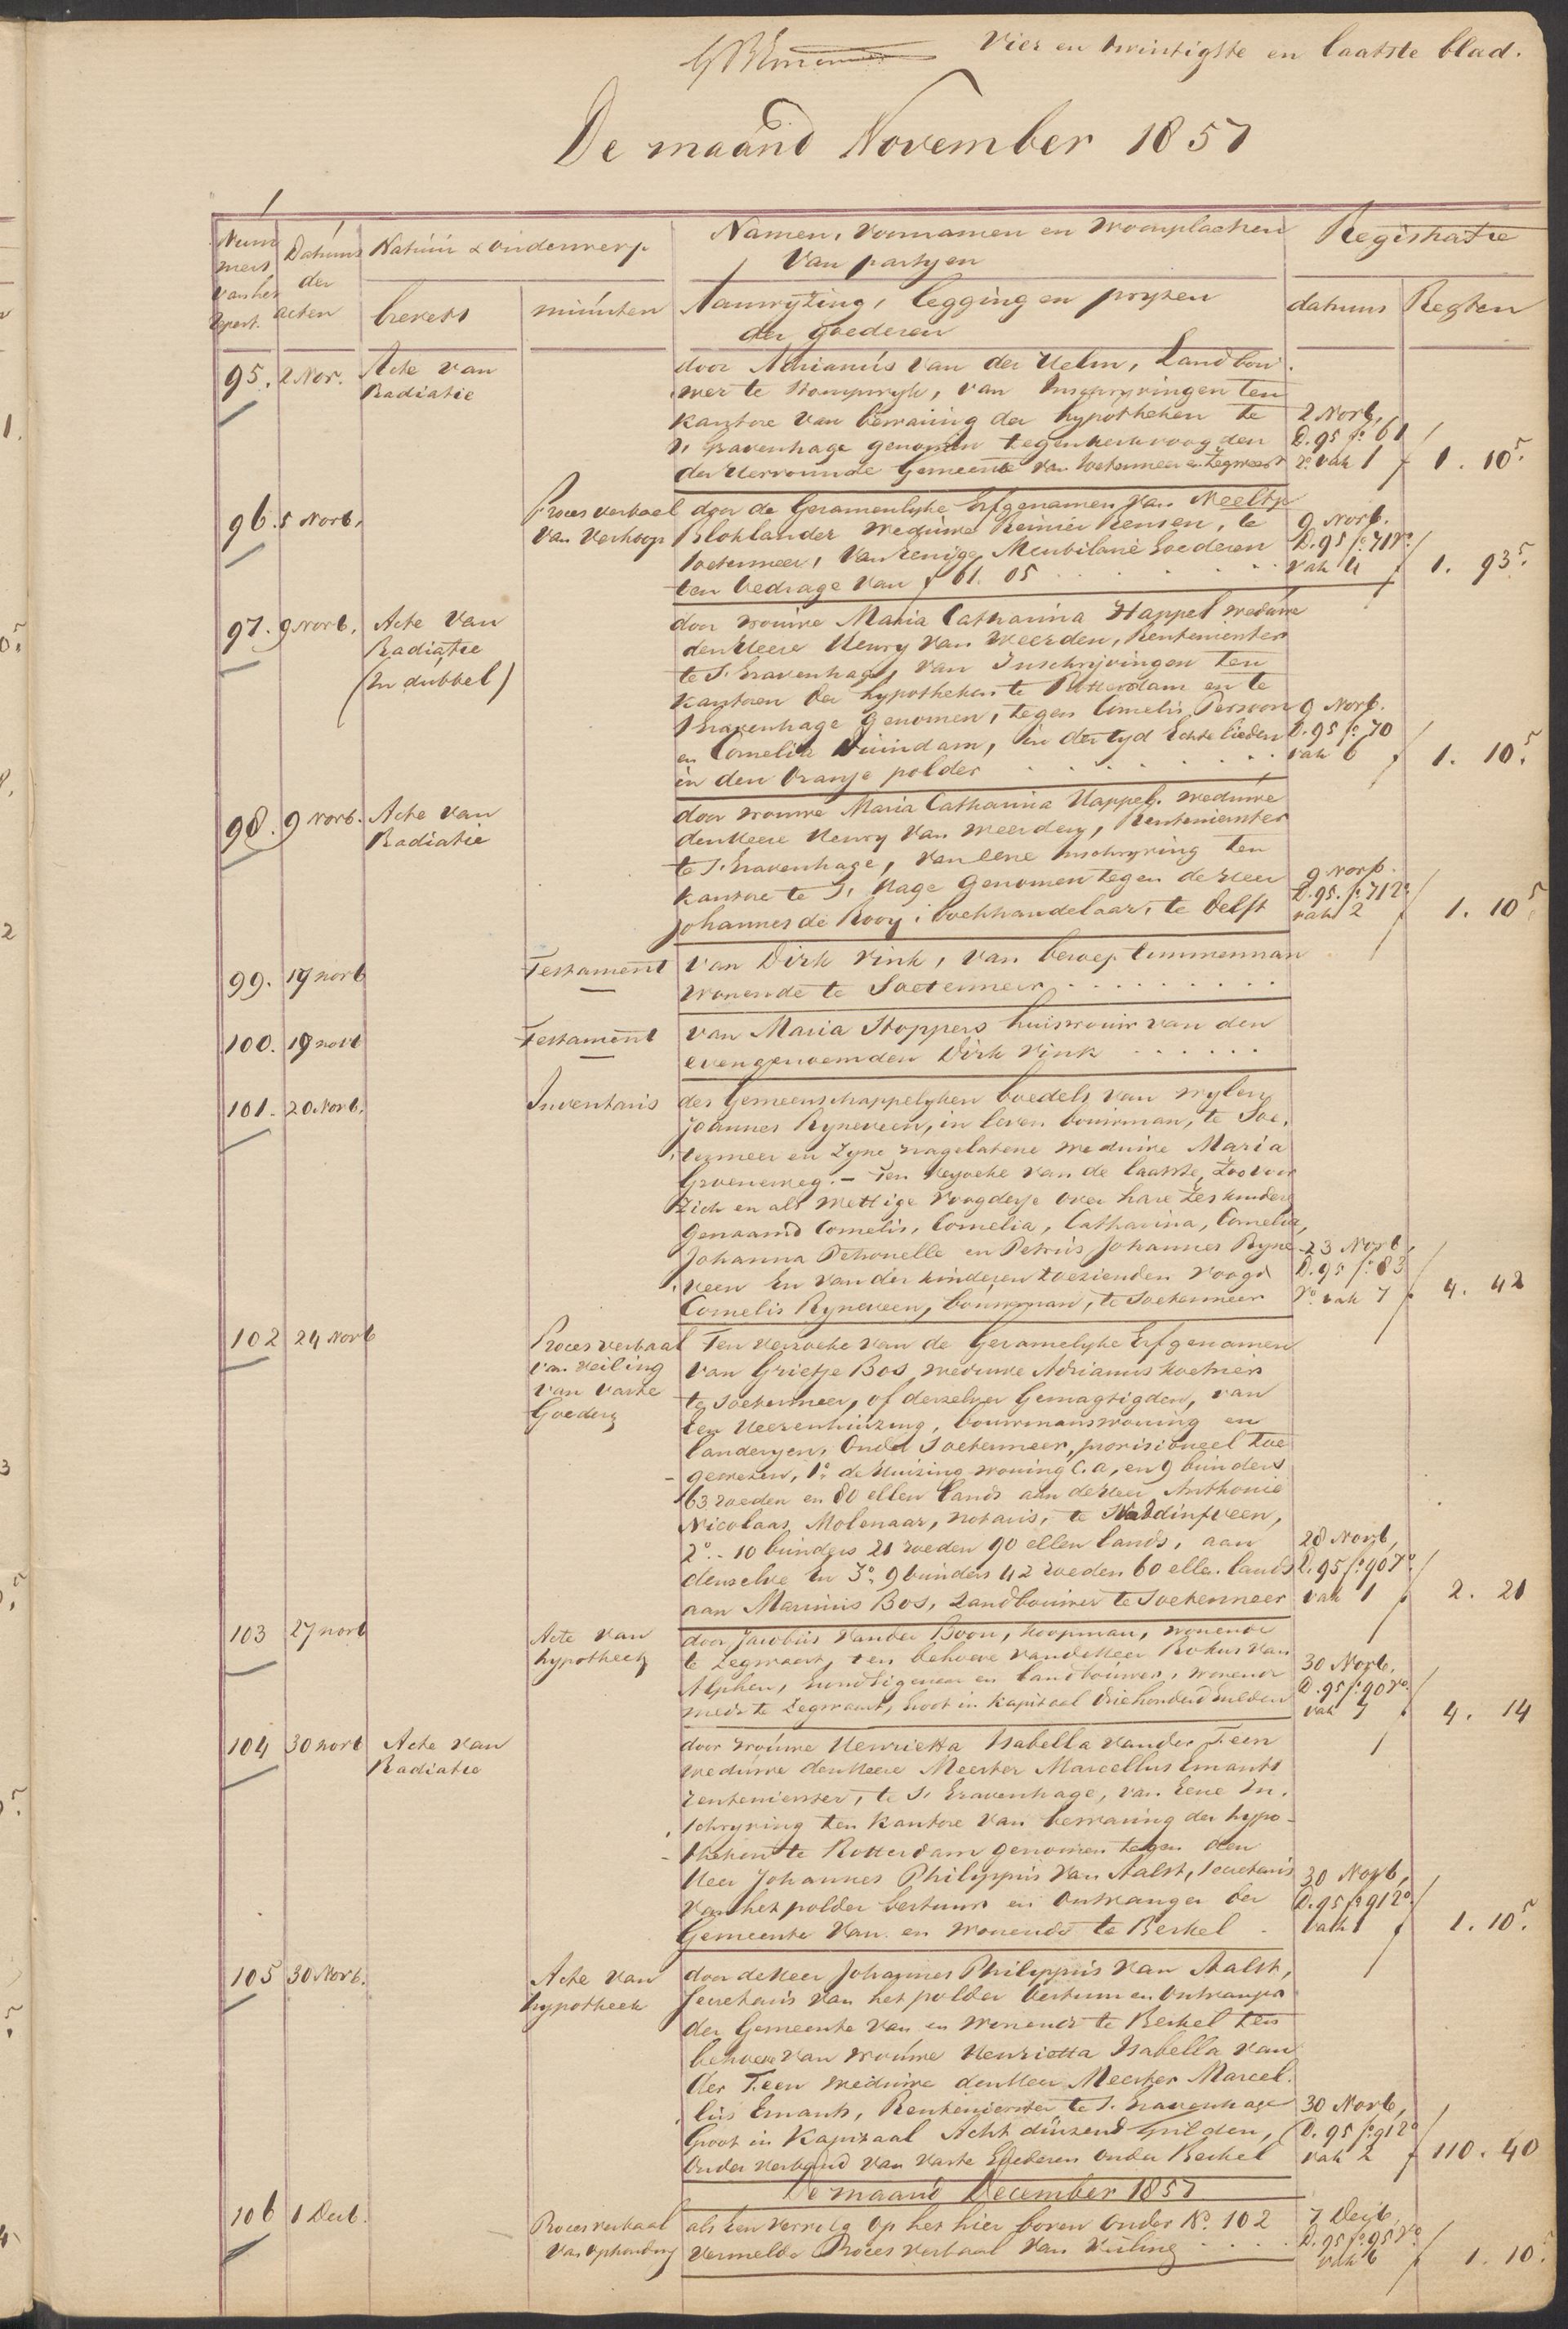 Vier en twintigste en laatste blad.
De maand November 1857
Num
mers
van het
Repert.
Datums
der
acten
Natuur & onderwerp
brevets
minuten
Namen, voornamen en woonplaatsen
van partyen
Aanwyzing, legging en pryzen
der goederen
Registratie
datums
Regten
95. 2 Nov. Acte van
Radiatie
door Adrianus van der Helm, Landbou-
wer te Stompwyk, van Inschryvingen ten
kantore van bewaring der hypotheken te
s'Gravenhage genomen tegen kerkvoogden
der Hervormde Gemeente van Soetermeer en Zegwaart
2 Novb,
D. 95 fo 61
ro vak 1 f 1. 10 5.
96. 5 Novb.
Proces verbaal
van verkoop
door de Gezamenlyke Erfgenamen van Neeltje
Bloklander weduwe Reinier Rensen, te
Soetermeer, van eenige Meubilaire Goederen
ten bedrage van f 61. 05
9 Novb.
D. 95 fo 71 ro
vak 4 f 1. 93 5.
97. 9 Novb. Acte van
Radiatie
(In dubbel)
door vrouwe Maria Catharina Happel weduwe
den Heere Henry van Weerden, Rentenierster
te s'Gravenhage, van Inschrijvingen ten
kantoren der hypotheken te Rotterdam en te
s'Gravenhage genomen, tegen Cornelis Persoon
en Cornelia Duindam, in der tyd Echtelieden
in den Oranje polder
9 Novb.
D. 95 fo 70
vak 6 f 1. 10 5.
98. 9 Novb. Acte van
Radiatie
door vrouwe Maria Catharina Happel. weduwe
den Heere Henry van Weerden, Rentenierster
te s'Gravenhage, van eene Inschryving ten
kantore te s'Hage genomen tegen de Heer
Johannes de Rooy, boekhandelaar, te Delft
9 Novb.
D. 95. fo 71 ro
vak 2 f 1. 10 5.
99. 19 novb
Testament
van Dirk Vink, van beroep timmerman
wonende te Soetermeer
100. 19 novb
Testament
van Maria Stoppers huisvrouw van den
evengenoemden Dirk Vink
101. 20 Novb.
Inventaris
des Gemeenschappelyken boedels van wylen
Joannes Ryneveen, in leven bouwman, te Soe-
termeer en Zyne nagelatene weduwe Maria
Groeneweg. - Ten verzoeke van de laatste, Zoo voor
Zich en als Wettige Voogdesse over hare Zes kinderen
genaamd Cornelis, Cornelia, Catharina, Cornelia,
Johanna Petronella en Petrus Johannes Ryne-
veen En van der kinderen toezienden voogd
Cornelis Ryneveen, bouwman, te Soetermeer
23 Novb.
D. 95 fo 83
vo vak 7 f 4. 42
102 24 Novb
Proces verbaal
van veiling
van vaste
Goederen
Ten verzoeke van de Gezamelyke Erfgenamen
van Grietje Bos, weduwe Adrianus
te Soetermeer, of derzelver Gemagtigden, van
een Heerenhuizing, bouwmanswoning en
landeryen, Onder Soetermeer, provisioneel toe
gewezen, 1o. de Huizing woning c. a, en 9 bunders
63 roeden en 80 ellen lands aan de Heer Anthonie
Nicolaas Molenaar, notaris, te Waddinxveen,
2o. - 10 bunders 21 roeden 90 ellen lands, aan
denzelve En 3o. 9 bunders 42 roeden 60 ellen lands
aan Marinus Bos, Landbouwer te Soetermeer
28 Novb,
D. 95 fo 90 ro
vak 1 f 2. 21
103 27 novb
Acte van
hypotheek
door Jacobus van der Boon, koopman, wonende
te Zegwaart, ten behoeve van de Heer Rokus van
Alphen, Grondeigenaar en landbouwer, wonende
mede te Zegwaart, Groot in kapitaal driehonderd Gulden
30 Novb.
D. 95 fo 90 vo
vak 7 f 4. 14
104 30 novb Acte van
Radiatie
door vrouwe Henrietta Isabella van der Teen
weduwe den Heere Meester Marcellus Emants
rentenierster, te s'Gravenhage, van Eene In-
schryving ten kantore van bewaring der hypo-
theken te Rotterdam genomen tegen den
Heer Johannes Philippus van Aalst, secretaris
van het polder bestuur en Ontvanger der
Gemeente van en wonende te Berkel
30 Novb,
D. 95 fo 91 ro
vak 1 f 1. 10 5.
105 30 Novb.
Acte van
hypotheek
door de Heer Johannes Philippus van Aalst,
Secretaris van het polder bestuur en Ontvanger
der Gemeente van en wonende te Berkel ten
behoeve van vrouwe Henrietta Isabella van
der Teen weduwe den Heer Meester Marcel-
lus Emants, Rentenierster te s'Gravenhage
Groot in Kapitaal Acht duizend Gulden,
Onder verband van vaste Goederen Onder Berkel
30 Novb,
D. 95 fo 91 ro
vak 2 f 110. 40
De maand December 1857
106 1 Decb.
Proces verbaal
van ophouding
als een vervolg op het hier boven Onder No. 102
vermelde Proces verbaal van Veiling
7 Decb,
D. 95 fo 95 vo
vak 6 f 1. 10 5.